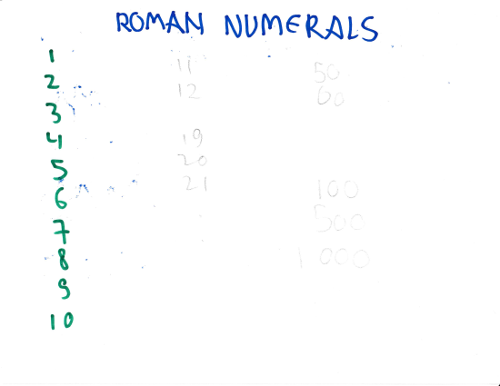 ROMAN NUMERALS
1
2
3
4
5
6
7
8
9
10
11
12
19
20
21
50
60
100
500
1 000